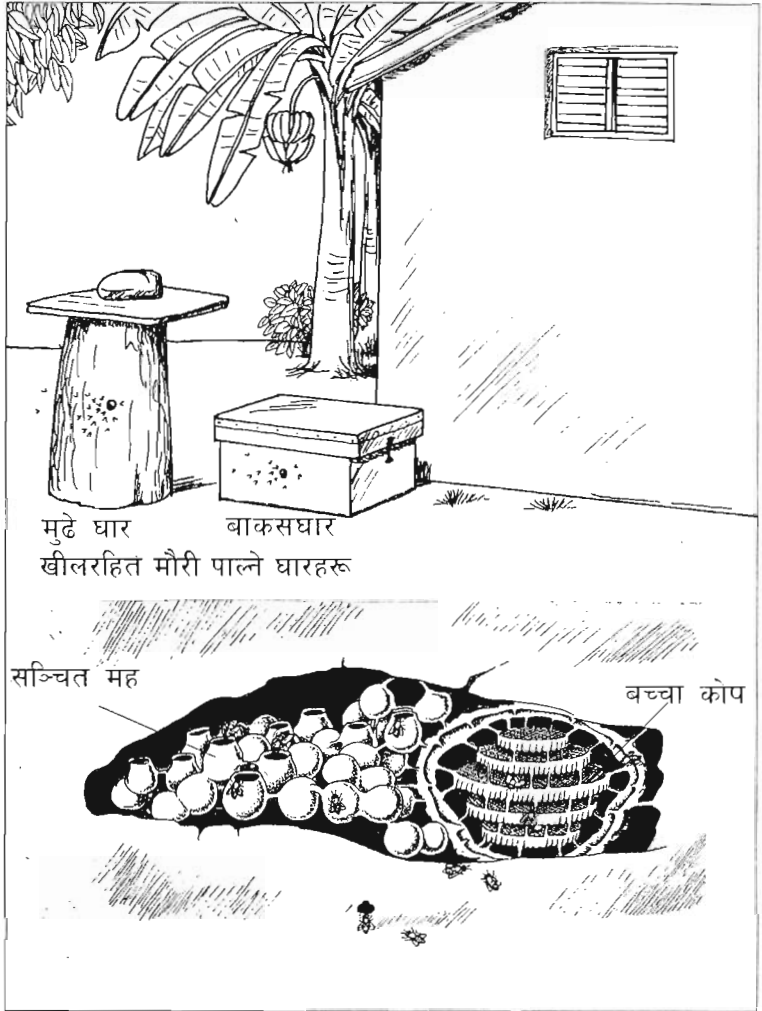 मुढे घार
बाकसघार
खीलरहित मौरी पाल्ने घारहरू
सञ्चित मह
बच्चा कोप